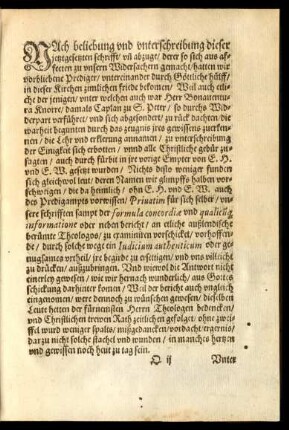 NAch beliebung vnd vnterschreibung dieser
jentgesetzten schrifft/ vñ abzuge/ derer so sich aus af-
fecten zu vnsern Widersachern gemacht/ hatten wir
vorbliebene Prediger/ vntereinander durch Göttliche hülff/
in dieser Kirchen zimlichen friede bekomen/ Weil auch etli-
che der jenigen/ vnter welchen auch war Herr Bonauentu-
ra Knorre/ damals Caplan zu S. Peter/ so durchs Wid-
derpart verführet/ vnd sich abgesondert/ zu rück dachten/ die
warheit begunten durch das zeugnis jres gewissens zuerken-
nen/ die Lehr vnd erklerung annamen/ zu vnterschreibung
der Einigkeit sich erboten/ vnnd alle Christliche gebür zu-
sagten/ auch durch fürbit in jre vorige Empter von E. H.
vnd E. W. gesetzt wurden/ Nichts desto weniger funden
sich gleichwol leut/ deren Namen wir glimpffs halben vor-
schweigen/ die da heimlich/ ohn E. H. vnd E. W. auch
des Predigampts vorwissen/ Priuatim für sich selber/ vn-
sere schrifften sampt der formula concordiæ vnd qualicũq̃
informatione oder neben bericht/ an etliche außlendische
berümte Theologos/ zu examiniren vorschicket/ vorhoffen-
de/ durch solche wege ein Iudicium authenticum oder ge-
nugsames vrtheil/ jre begirde zu ersettigen/ vnd vns villeicht
zu drücken/ außzubringen. Vnd wiewol die Antwort nicht
einerley gewesen/ wie wir hernach wunderlich/ aus Gottes
schickung darhinter komen/ Weil der bericht auch vngleich
eingenomen/ were dennoch zu wünschen gewesen/ dieselben
Leute hetten der fürnemsten Herrn Theologen bedencken/
vnd Christlichen trewen Rath zeitlichen gefolget/ ohne zwei-
ffel wurd weniger spaltũ/ mißgedancken/ vordacht/ ergernis/
dar zu nicht solche stachel vnd wunden/ in manches hertzen
vnd gewissen noch heut zu tag sein.
O ij Vnter